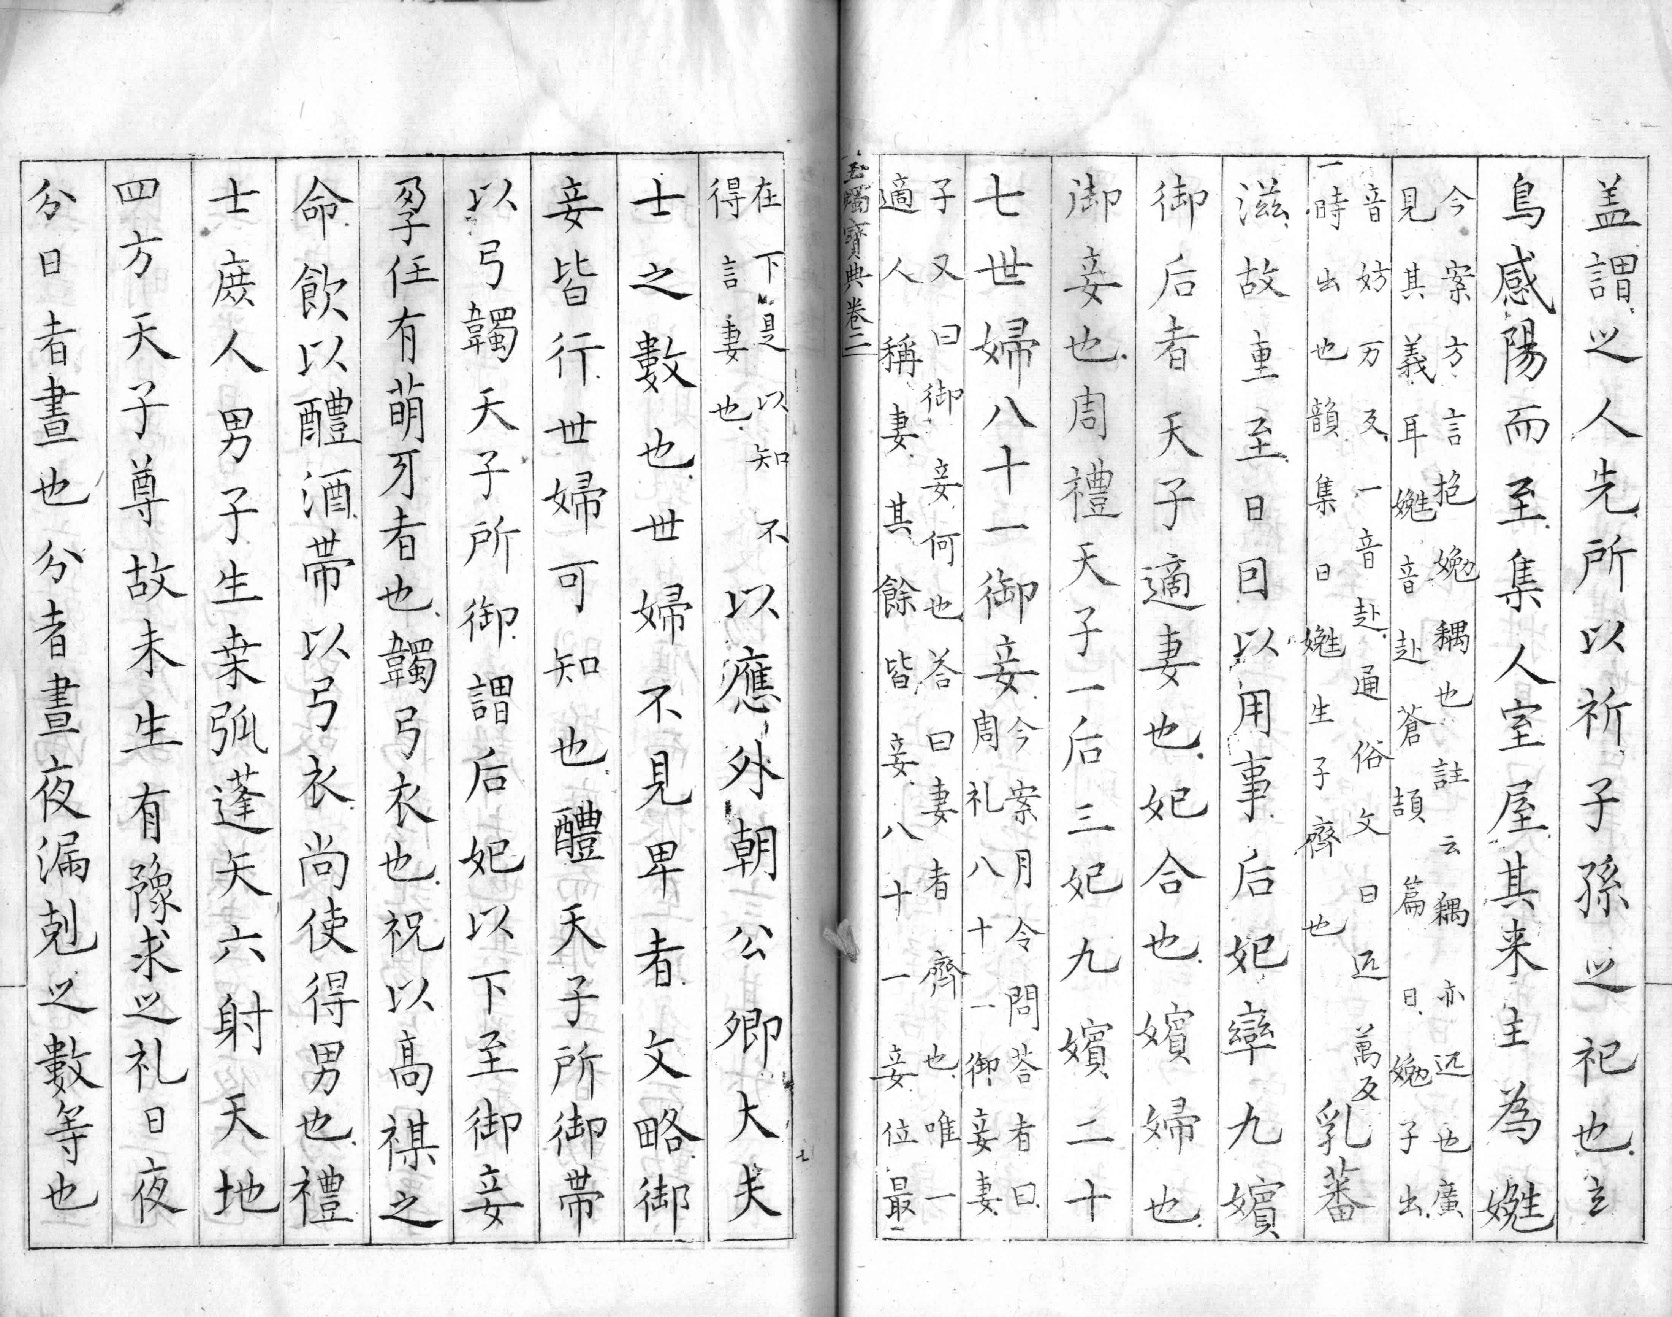 盖謂之人先所以祈子孫之祀也玄
鳥感陽而至集人室屋其来主為嬎
今案方言抱嬎耦也註云耦亦远也廣
見其義耳嬎音赴蒼頡篇曰嬎子出
音妨万反一音赴通俗文曰匹萬反
一時出也韻集曰嬎生子齊也
乳蕃
滋故重至日囙以用事后妃率九嬪
御后者天子適妻也妃合也嬪婦也
御妾也周禮天子一后三妃九嬪二十
七世婦八十一御妾
今案月令問荅者曰
周礼八十一御妾妻
子又曰御妾何也荅曰妻者齊也唯一
適人稱妻其餘皆妾八十一妾位最
玉燭寶典卷二
在下是以知不
得言妻也
以應外朝公卿大夫
士之數也世婦不見卑者文略御
妾皆行世婦可知也醴天子所御帶
以弓韣天子所御謂后妃以下至御妾
孕任有萌牙者也韣弓衣也祝以高禖之
命飲以醴酒帶以弓衣尚使得男也禮
士庶人男子生桒弧蓬矢六射天地
四方天子尊故未生有豫求之礼日夜
分日者晝也分者晝夜漏剋之數等也
七